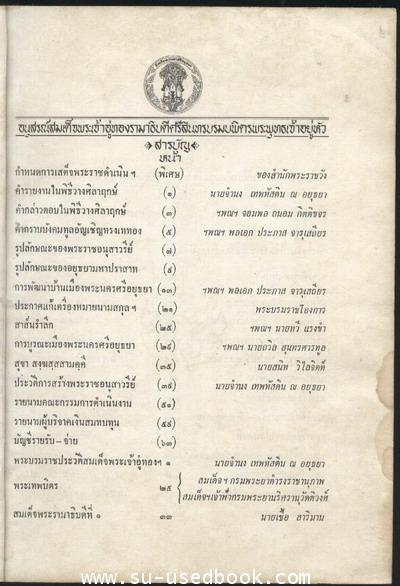 อนุสรณ์สมเด็จพระเจ้าอู่ทองรามาธิบดีศรีสินทรบรมบพิตรพระพุทธเจ้าอยู่หัว
สารบัญ
หน้า
กำหนดการเสด็จพระราชดำเนิน ฯ (พิเศษ) ของสำนักพระราชวัง
คำรายงานในพิธีวางศิลาฤกษ์ (๑) นายจำนง เทพหัสดิน ณ อยุธยา
คำกล่าวตอบในพิธีวางศิลาฤกษ์ (๓) ฯพณฯ จอมพล ถนอม กิตติขจร
คำกราบบังคมทูลอัญเชิญทรงเททอง (๕) ฯพณฯ พลเอก ประภาส จารุเสถียร
รูปลักษณะของพระราชอนุสาวรีย์ (๗)
รูปลักษณะของอยุธยามหาปราสาท (๙)
การพัฒนาบ้านเมืองพระนครศรีอยุธยา (๑๓) ฯพณฯ พลเอก ประภาส จารุเสถียร
ประกาศแก้เครื่องหมายนามสกุล ฯ (๒๑) พระบรมราชโองการ
สาส์นรำลึก (๒๕) ฯพณฯ นายทวี แรงขำ
การบูรณะเมืองพระนครศรีอยุธยา (๒๙) ฯพณฯ นายถวิล สุนทรศารทูล
สุขา สงฺฆสฺสสามคฺคี (๓๕) นายสนิท วิไลจิตต์
ประวัติการสร้างพระราชอนุสาวรีย์ (๓๙) นายจำนง เทพหัสดิน ณ อยุธยา
รายนามคณะกรรมการดำเนินงาน (๕๑)
รายนามผู้บริจาคเงินสมทบทุน (๕๙)
บัญชีรายรับ – จ่าย (๖๓)
พระบรมราชประวัติสมเด็จพระเจ้าอู่ทองฯ ๑ นายจำนง เทพหัสดิน ณ อยุธยา
พระเทพบิดร ๒๕ สมเด็จ ฯ กรมพระยาดำรงราชานุภาพ
สมเด็จฯเจ้าฟ้ากรมพระยานริศรานุวัดติวงศ์
สมเด็จพระรามาธิบดีที่ ๑ ๓๓ นายเชื้อ สาริมาน
www.su-usedbook.com